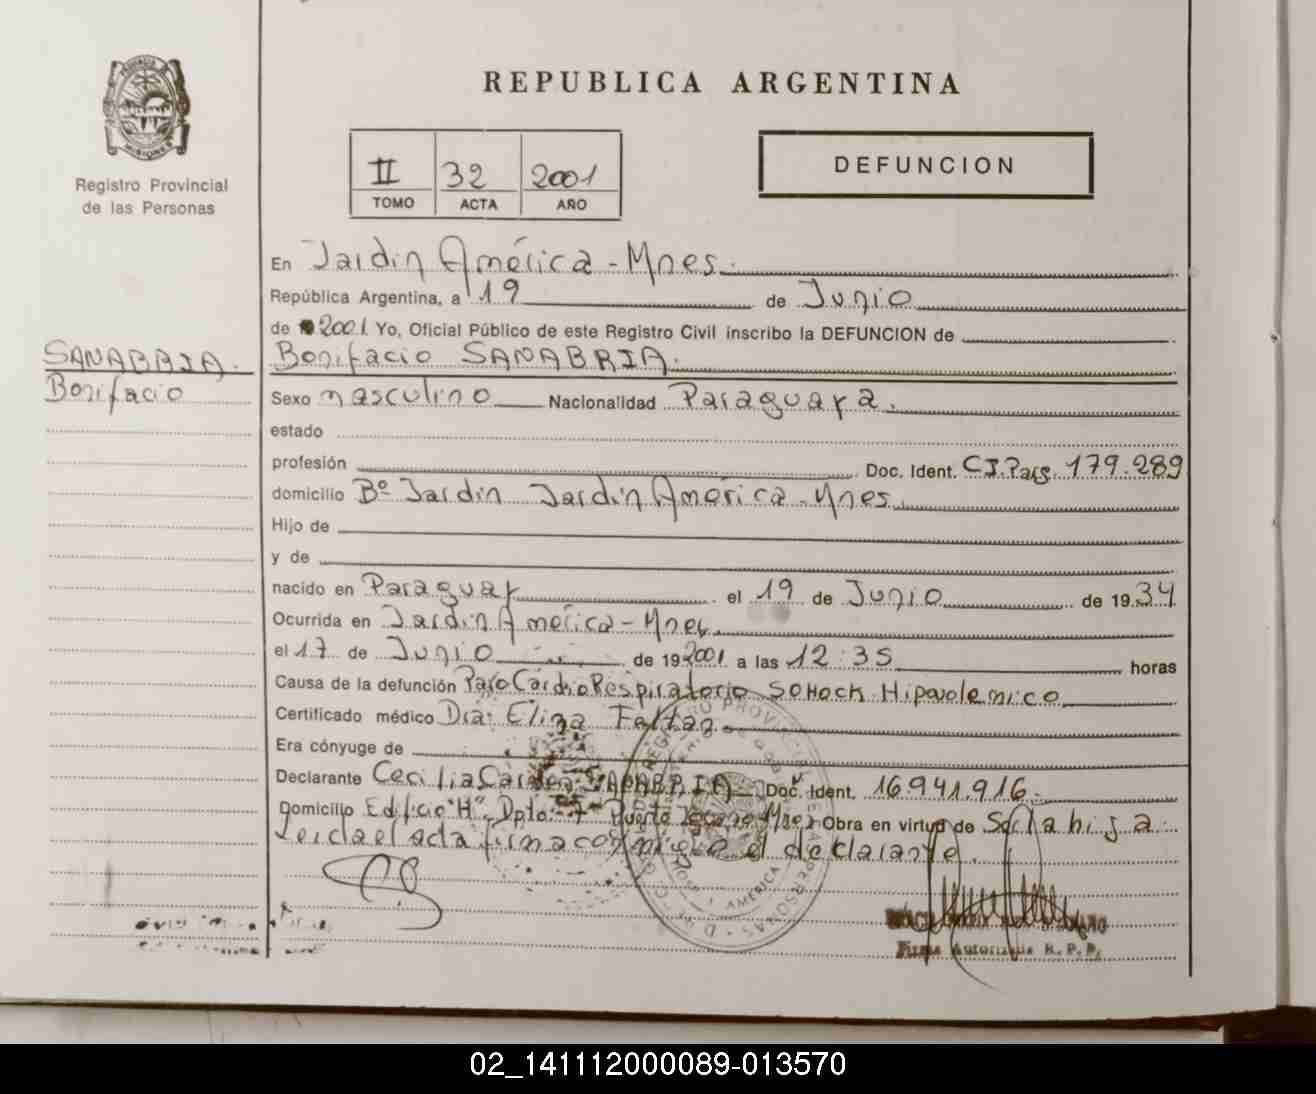 REPUBLICA ARGENTINA
PROVINCIA DE MISIONES
Registro Provincial
de las Personas
II 32 2001
TOMO ACTA AÑO
DEFUNCION
En Jardin América - Mnes.
República Argentina, a 19 de Junio
de 2001. Yo, Oficial Público de este Registro Civil inscribo la DEFUNCION de
SANABRIA.
Bonifacio
Bonifacio SANABRIA.
Sexo masculino Nacionalidad Paraguaya.
estado
profesión Doc. Ident. C.I. Parg. 179.289
domicilio Bº Jardin Jardin América - Mnes.
Hijo de
y de
nacido en Paraguay el 19 de Junio de 1934
Ocurrida en Jardin América - Mnes.
el 17 de Junio de 192001 a las 12:35 horas
Causa de la defunción Paro Cardio Respiratorio SCHOCK Hipovolemico
Certificado médico Dra. Eliza
Era cónyuge de
Declarante Cecilia SANABRIA Doc. Ident. 16941.916.
Domicilio Edificio "H" Dpto. 7 Puerto Mnes Obra en virtud de Ser la hija.
Leida el acta firma conmigo el declarante.
Firma Autorizada R.P.P.
02_141112000089-013570